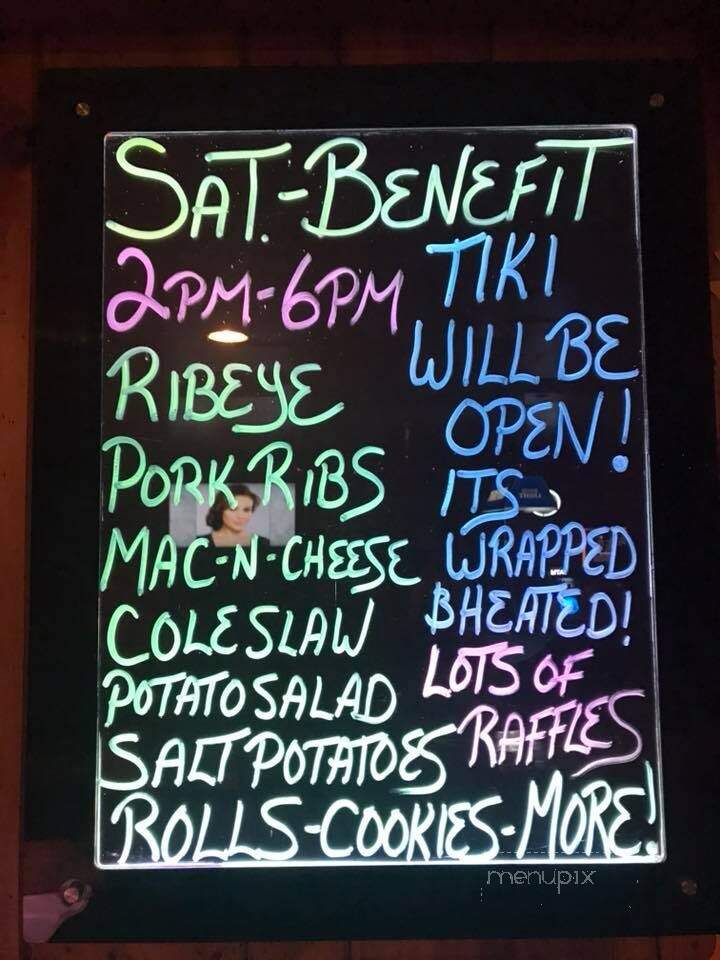 SAT.-BENEFIT
2PM-6PM
RIBEYE
PORK RIBS
MAC-N-CHEESE
COLESLAW
POTATO SALAD
SALT POTATOES
TIKI
WILL BE
OPEN!
ITS
WRAPPED
&HEATED!
LOTS OF
RAFFLES
ROLLS-COOKIES-MORE!
menupix